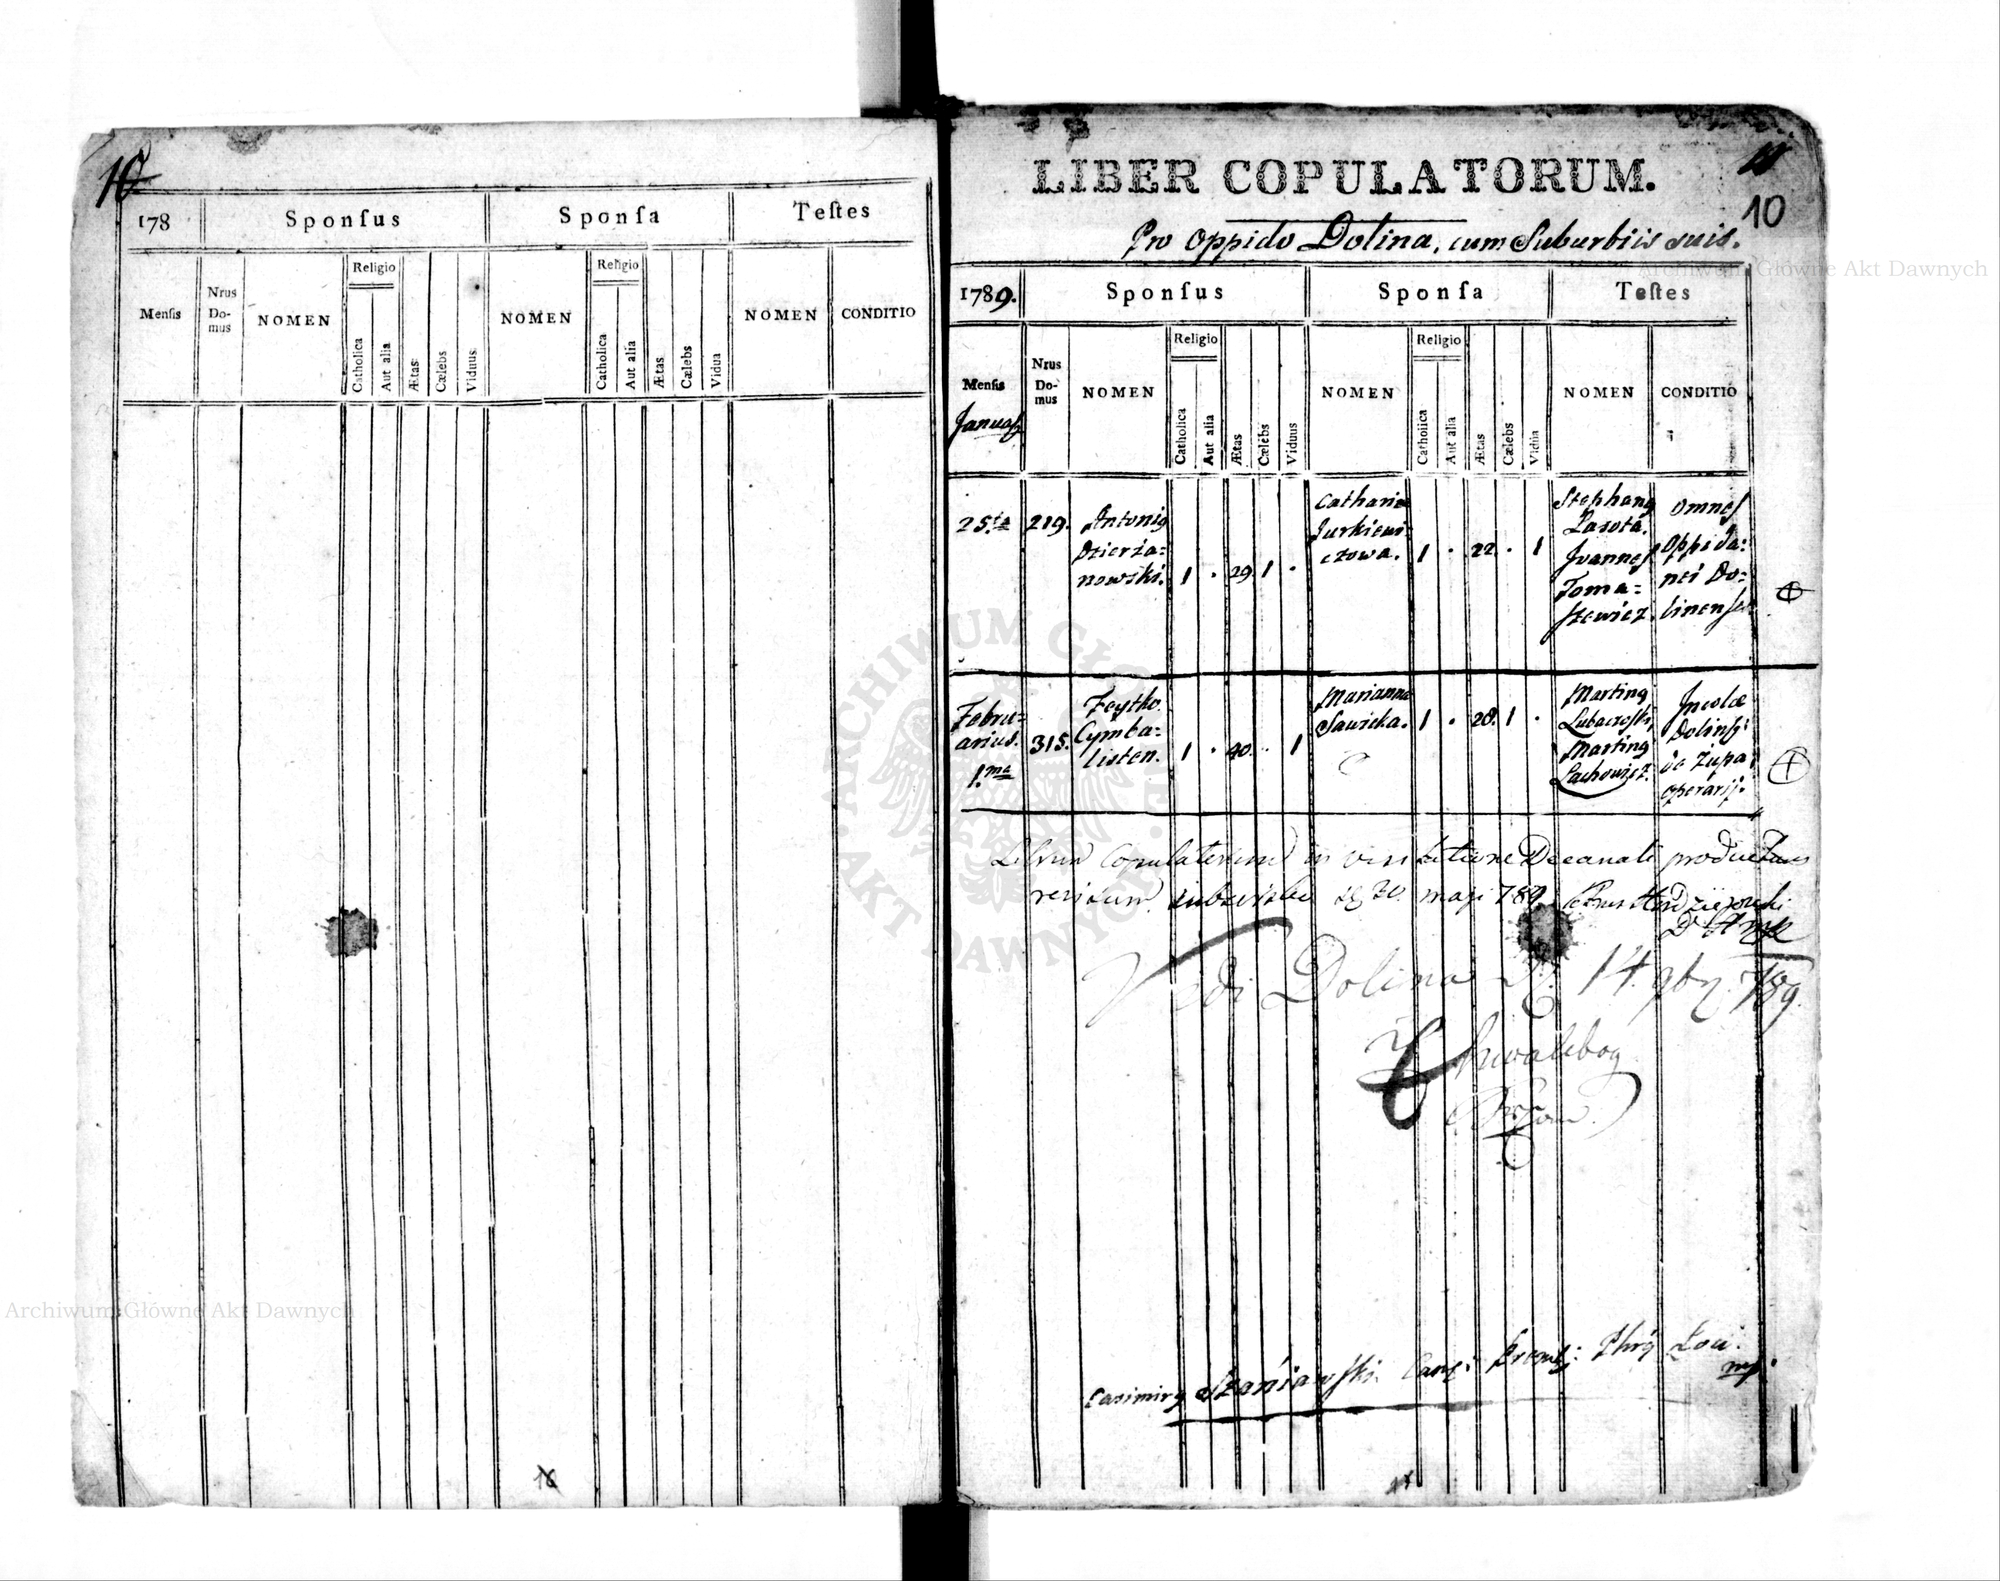 10
178
Sponſus
Sponſa
Teſtes
Menſis
Nrus Do-mus
NOMEN
Religio
Catholica
Aut alia
Ætas
Cælebs
Viduus
NOMEN
Religio
Catholica
Aut alia
Ætas
Cælebs
Vidua
NOMEN
CONDITIO
16
LIBER COPULATORUM.
10
Pro Oppido Dolina, cum Suburbiis suis.
1789.
Sponſus
Sponſa
Teſtes
Menſis
Nrus Do-mus
NOMEN
Religio
Catholica
Aut alia
Ætas
Cælebs
Viduus
NOMEN
Religio
Catholica
Aut alia
Ætas
Cælebs
Vidua
NOMEN
CONDITIO
25ta
219.
Antonig
Dzierża=
nowski.
1 . 29. 1 .
Catharina
Jurkiewi
czowa.
1 . 22 . 1
Stephang
Lasota.
Joannes
Toma=
szewicz.
omnes
Oppida:
nei Do=
linenses
Febru=
arius.
1.ma
315.
Feytko
Cymba=
listen.
1 . 40. . 1
Marianna
Sawicka.
1 . 20. 1 .
Marting
Marting
Lachowicz.
Incolæ
Dolinſ:
de Zupa
operarij.
Librum Copulatorum in visitatione Decanali productum
revisum maji 789
Vidi Dolina D. 14. 9br. 789.
Chwalibog
Casimirg Szaniawski
mp.
Archiwum Główne Akt Dawnych
Archiwum Główne Akt Dawnych
ARCHIWUM GŁÓWNE
AKT DAWNYCH